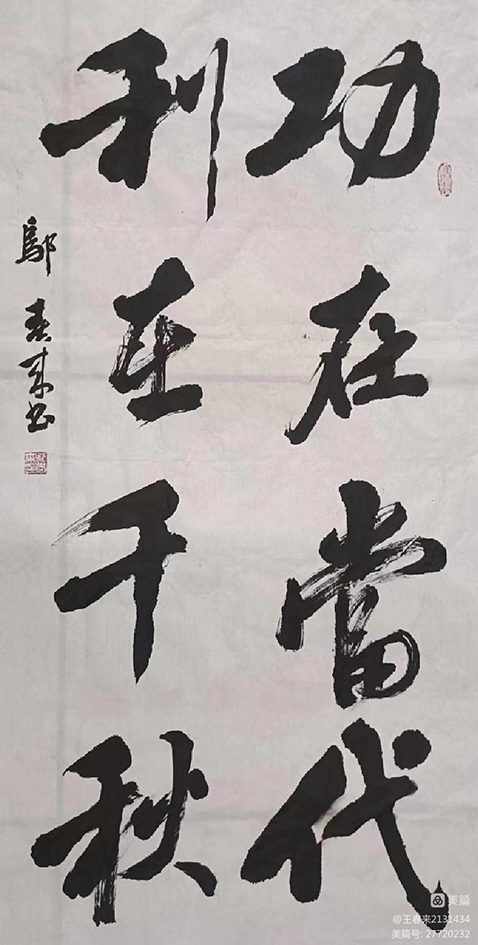 功在當代
利在千秋
鄔春來书
美篇
@王春来2131434
美篇号: 27720232